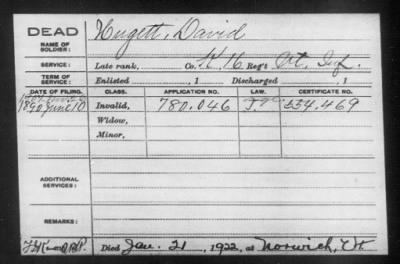 DEAD Hugett, David
NAME OF SOLDIER:
SERVICE: Late rank, Co. K. 16 Reg't Vt. Inf.
TERM OF SERVICE: Enlisted , 1 Discharged , 1
DATE OF FILING. CLASS. APPLICATION NO. LAW. CERTIFICATE NO.
1890 June 10 Invalid, 780,046 534,469
Widow,
Minor,
ADDITIONAL SERVICES:
REMARKS:
Died Jan. 21, 1922, at Norwich, Vt.